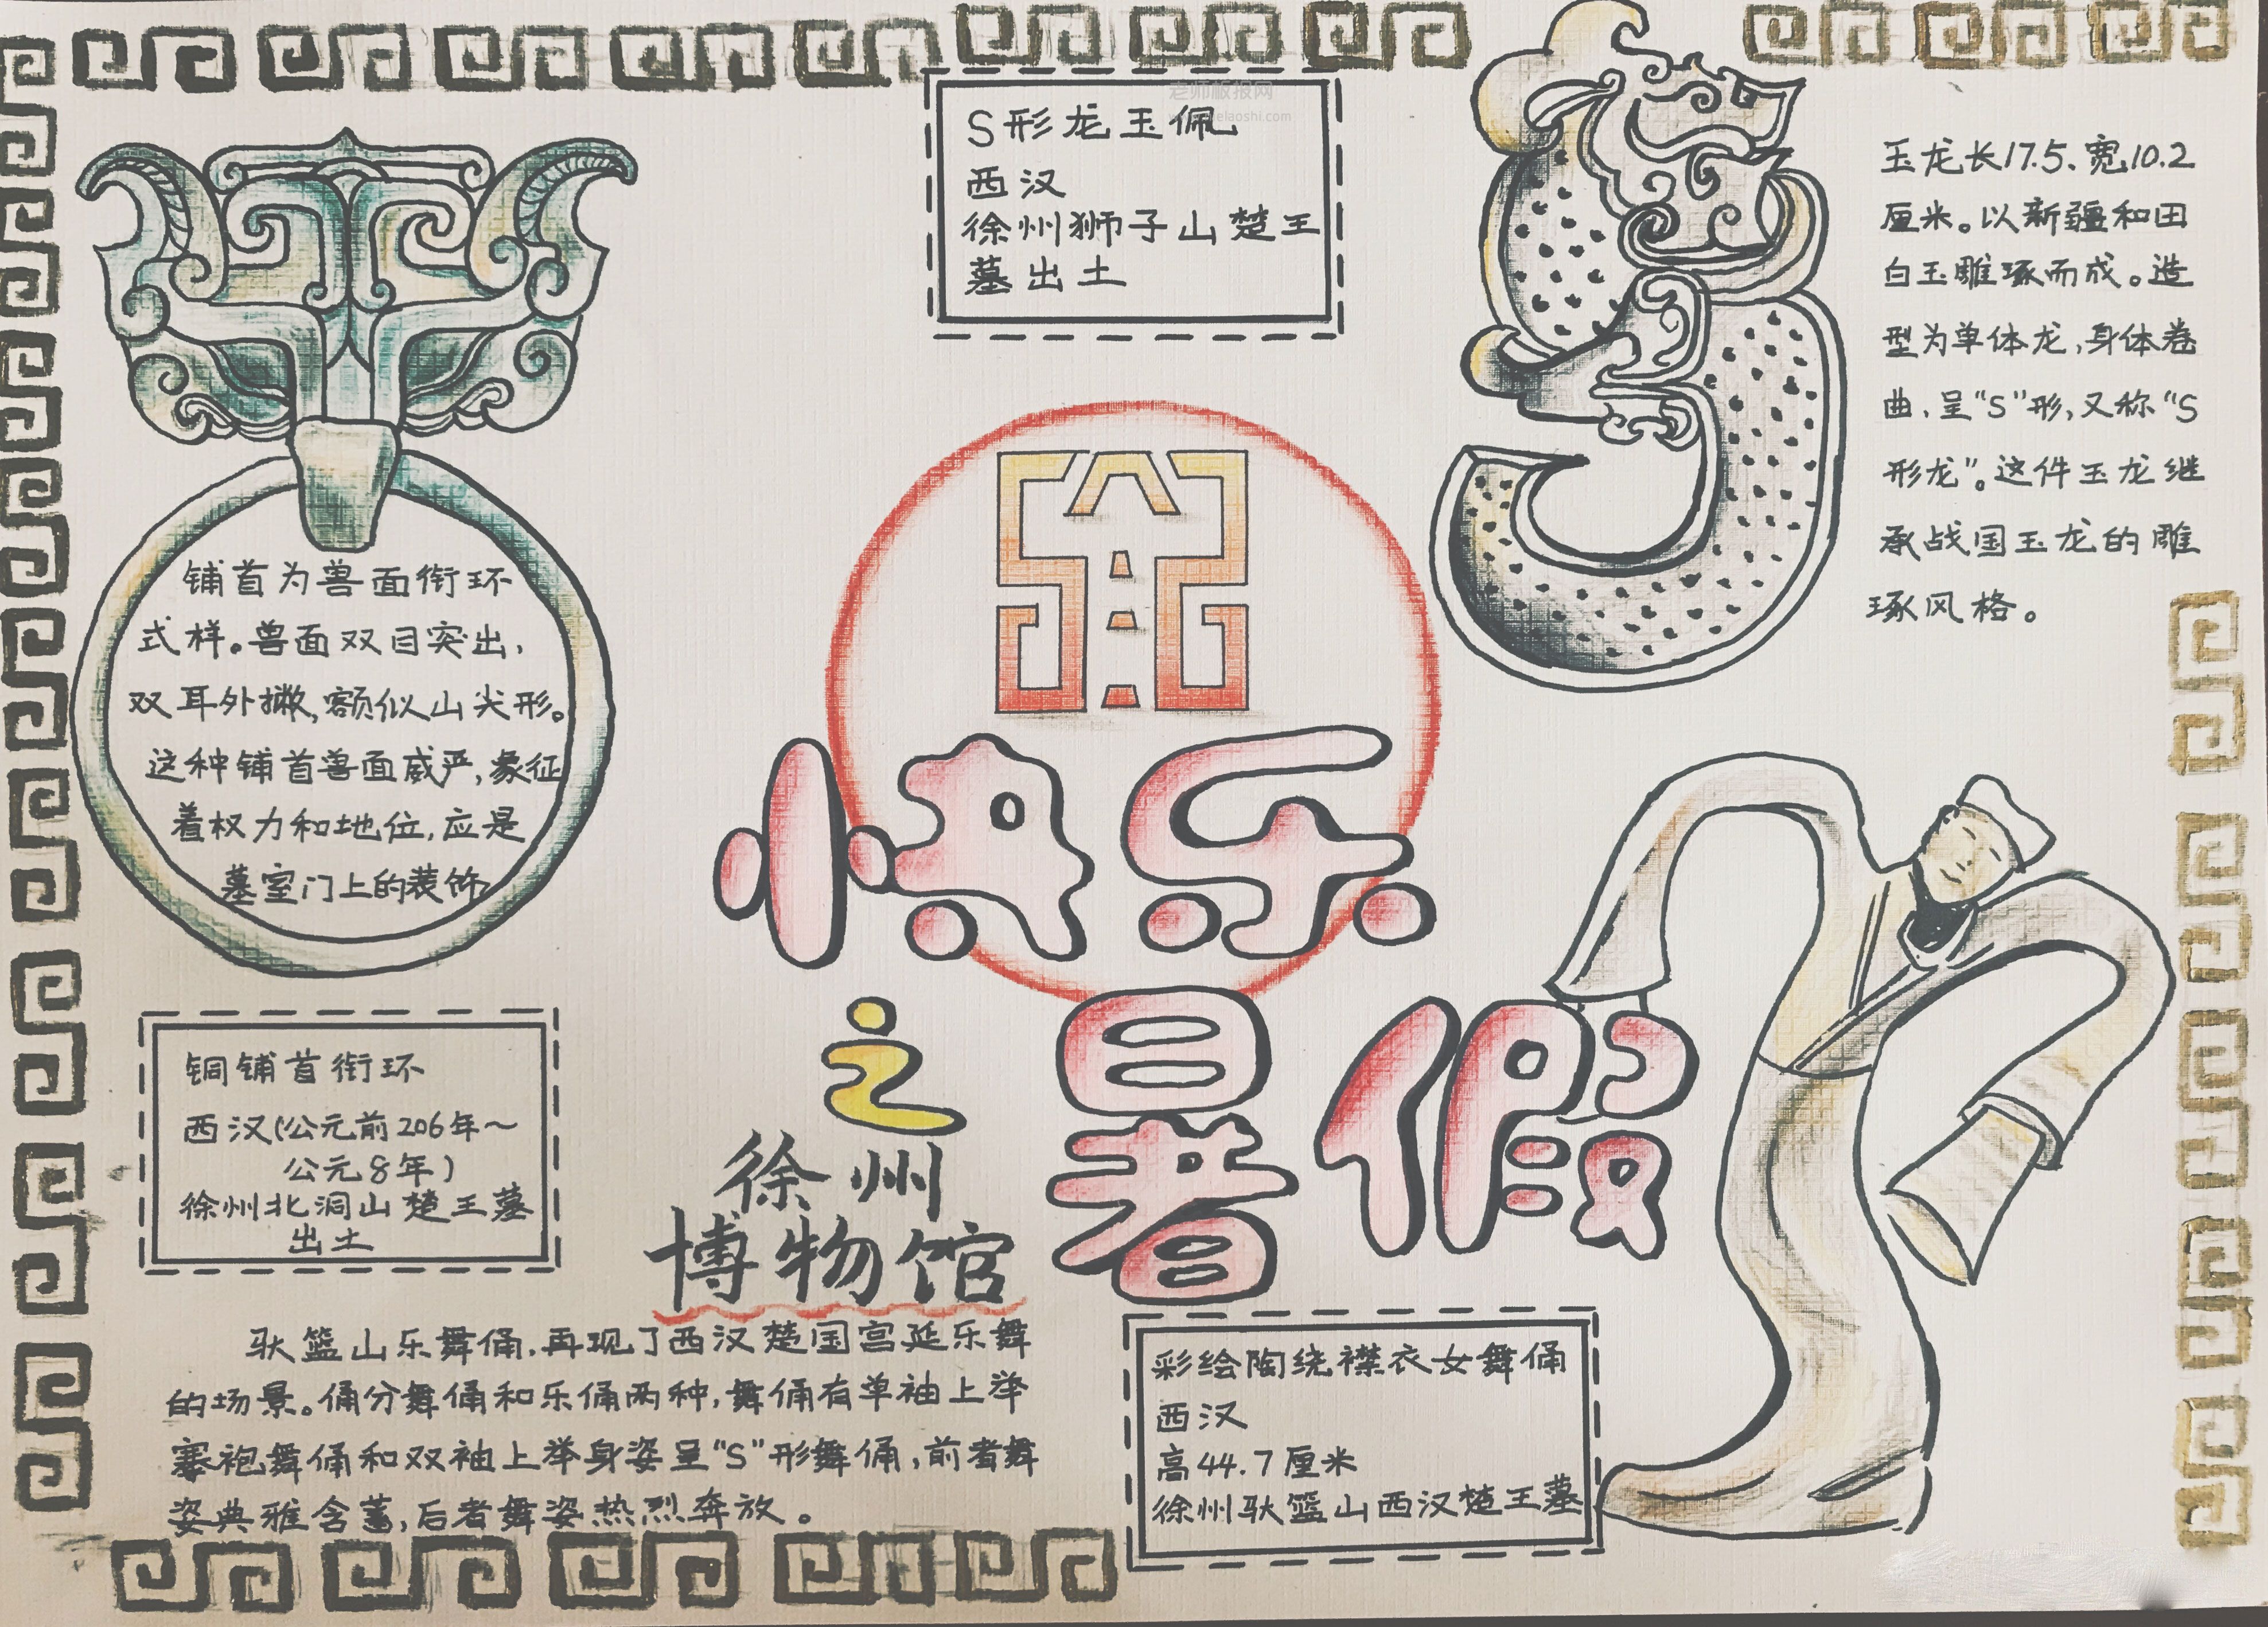 S形龙玉佩
西汉
徐州狮子山楚王
墓出土
玉龙长17.5、宽10.2
厘米。以新疆和田
白玉雕琢而成。造
型为单体龙,身体卷
曲,呈“S”形,又称“S
形龙”。这件玉龙继
承战国玉龙的雕
琢风格。
铺首为兽面衔环
式样。兽面双目突出,
双耳外撇,额似山尖形。
这种铺首兽面威严,象征
着权力和地位,应是
墓室门上的装饰
快乐
暑假
之
徐州
博物馆
铜铺首衔环
西汉(公元前206年~
公元8年)
徐州北洞山楚王墓
出土
驮篮山乐舞俑,再现了西汉楚国宫延乐舞
的场景。俑分舞俑和乐俑两种,舞俑有单袖上举
褰袍舞俑和双袖上举身姿呈“S”形舞俑,前者舞
姿典雅含蓄,后者舞姿热烈奔放。
彩绘陶绕襟衣女舞俑
西汉
高44.7厘米
徐州驮篮山西汉楚王墓
老师板报网